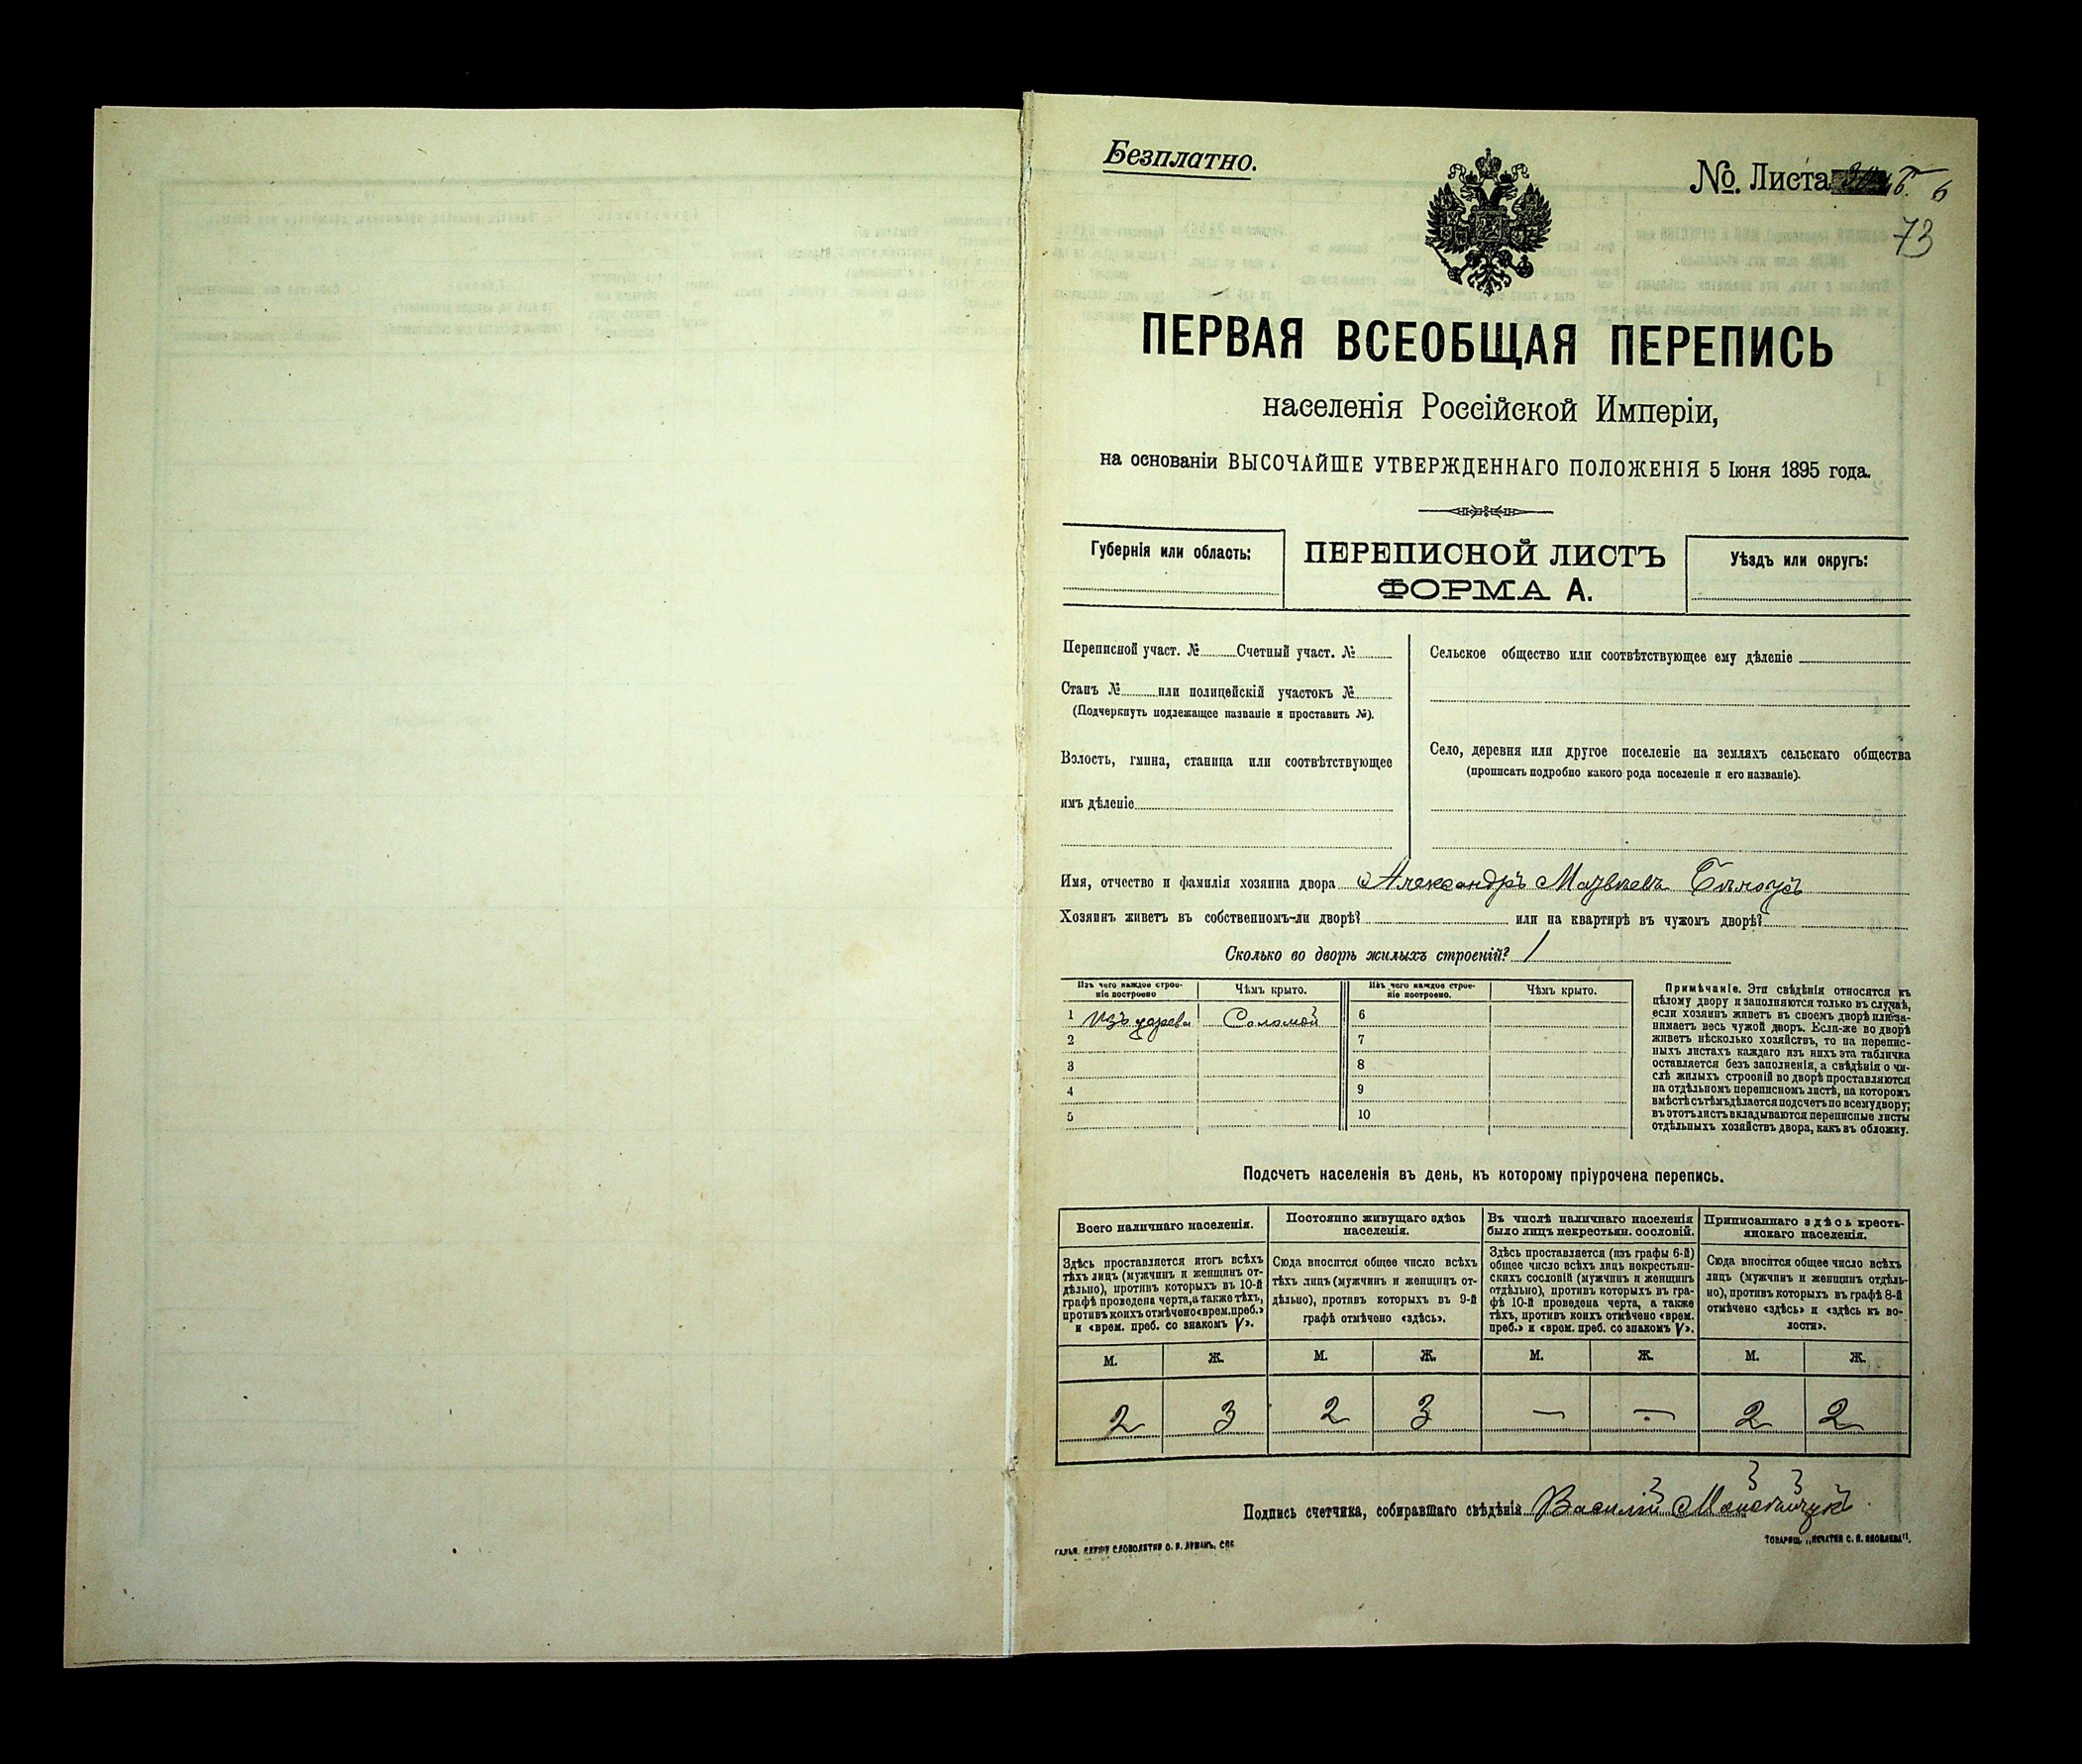 Безплатно.
№. Листа 6
73
ПЕРВАЯ ВСЕОБЩАЯ ПЕРЕПИСЬ
населенія Россійской Имперіи,
на основаніи ВЫСОЧАЙШЕ УТВЕРЖДЕННАГО ПОЛОЖЕНІЯ 5 Іюня 1895 года.
Губернія или область:
ПЕРЕПИСНОЙ ЛИСТЪ
ФОРМА А.
Уѣздъ или округъ:
Переписной участ. № Счетный участ. №
Станъ № или полицейскій участокъ №
(Подчеркнуть подлежащее названіе и проставить №).
Волость, гмина, станица или соотвѣтствующее
имъ дѣленіе
Сельское общество или соотвѣтствующее ему дѣленіе
Село, деревня или другое поселеніе на земляхъ сельскаго общества
(прописать подробно какого рода поселеніе и его названіе).
Имя, отчество и фамилія хозяина двора Александръ Матвѣевъ
Хозяинъ живетъ въ собственномъ-ли дворѣ? или на квартирѣ въ чужомъ дворѣ?
Сколько во дворѣ жилыхъ строеній? 1
Изъ чего каждое строе-
ніе построено
Чѣмъ крыто.
Изъ чего каждое строе-
ніе построено.
Чѣмъ крыто.
1 Изъ дерева Соломой 6
2 7
3 8
4 9
5 10
Примѣчаніе. Эти свѣдѣнія относятся къ
цѣлому двору и заполняются только въ случаѣ,
если хозяинъ живетъ въ своемъ дворѣ или за-
нимаетъ весь чужой дворъ. Если-же во дворѣ
живетъ нѣсколько хозяйствъ, то на перепис-
ныхъ листахъ каждаго изъ нихъ эта табличка
оставляется безъ заполненія, а свѣдѣнія о чи-
слѣ жилыхъ строеній во дворѣ проставляются
на отдѣльномъ переписномъ листѣ, на которомъ
вмѣстѣ съ тѣмъ дѣлается подсчетъ по всему двору;
въ этотъ листъ вкладываются переписные листы
отдѣльныхъ хозяйствъ двора, какъ въ обложку.
Подсчетъ населенія въ день, къ которому пріурочена перепись.
Всего наличнаго населенія.
Здѣсь проставляется итогъ всѣхъ
тѣхъ лицъ (мужчинъ и женщинъ от-
дѣльно), противъ которыхъ въ 10-й
графѣ проведена черта, а также тѣхъ,
противъ коихъ отмѣчено «врем. преб.»
и «врем. преб. со знакомъ V».
Постоянно живущаго здѣсь
населенія.
Сюда вносится общее число всѣхъ
тѣхъ лицъ (мужчинъ и женщинъ от-
дѣльно), противъ которыхъ въ 9-й
графѣ отмѣчено «здѣсь».
Въ числѣ наличнаго населенія
было лицъ некрестьян. сословій.
Здѣсь проставляется (изъ графы 6-й)
общее число всѣхъ лицъ некрестьян-
скихъ сословій (мужчинъ и женщинъ
отдѣльно), противъ которыхъ въ гра-
фѣ 10-й проведена черта, а также
тѣхъ, противъ коихъ отмѣчено «врем.
преб.» и «врем. преб. со знакомъ V».
Приписаннаго здѣсь кресть-
янскаго населенія.
Сюда вносится общее число всѣхъ
лицъ (мужчинъ и женщинъ отдѣль-
но), противъ которыхъ въ графѣ 8-й
отмѣчено «здѣсь» и «здѣсь къ во-
лости».
М. Ж. М. Ж. М. Ж. М. Ж.
2 3 2 3 — — 2 2
Подпись счетчика, собиравшаго свѣдѣнія Василій